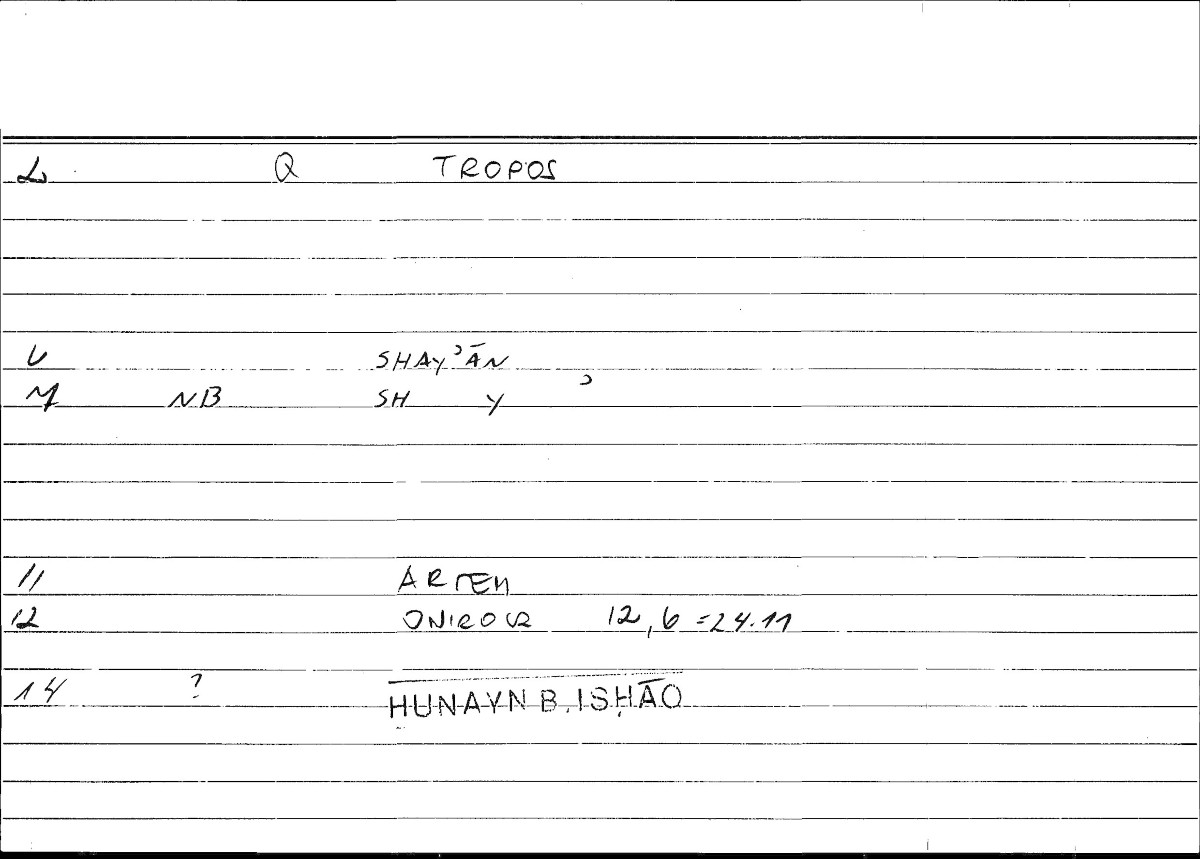 L Q TROPOS
U SHAYʾĀN
M NB SH Y ʾ
11 ARTEM
12 ONIROCR 12,6 =24.11
14 ?
HUNAYN B. ISḤĀQ